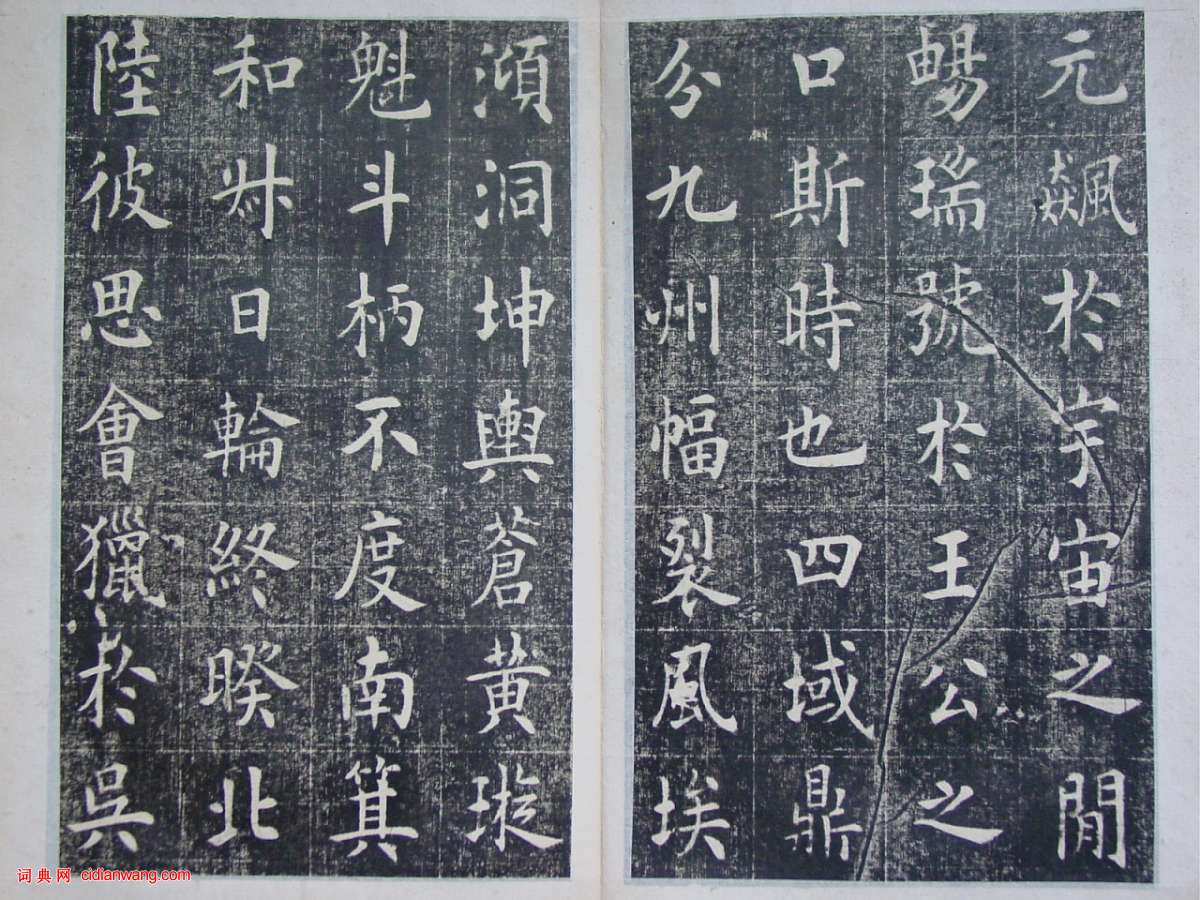 元飆於宇宙之閒
暢瑞號於王公之
口斯時也四域鼎
分九州幅裂風埃
澒洞坤輿蒼黃璇
魁斗柄不度南箕
和叔日輪終睽北
陸彼思會獵於吳
词典网 cidianwang.com